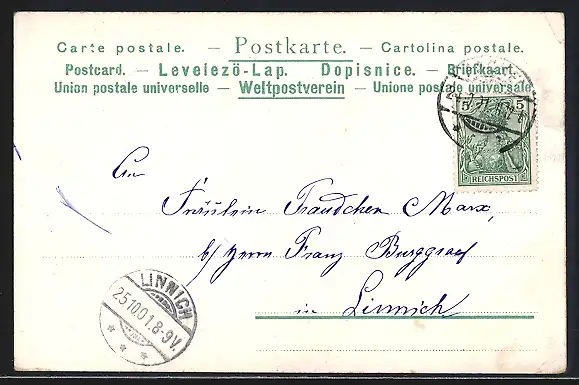 Carte postale. — Postkarte. — Cartolina postale.
Postcard. — Levelezö-Lap. Dopisnice. — Briefkaart.
Union postale universelle — Weltpostverein — Unione postale universale
5 5
REICHSPOST
An
Fräulein Traudchen Marx,
b/ Herrn Franz Burggraef
in Linnich
LINNICH
25.10.01.8-9V.